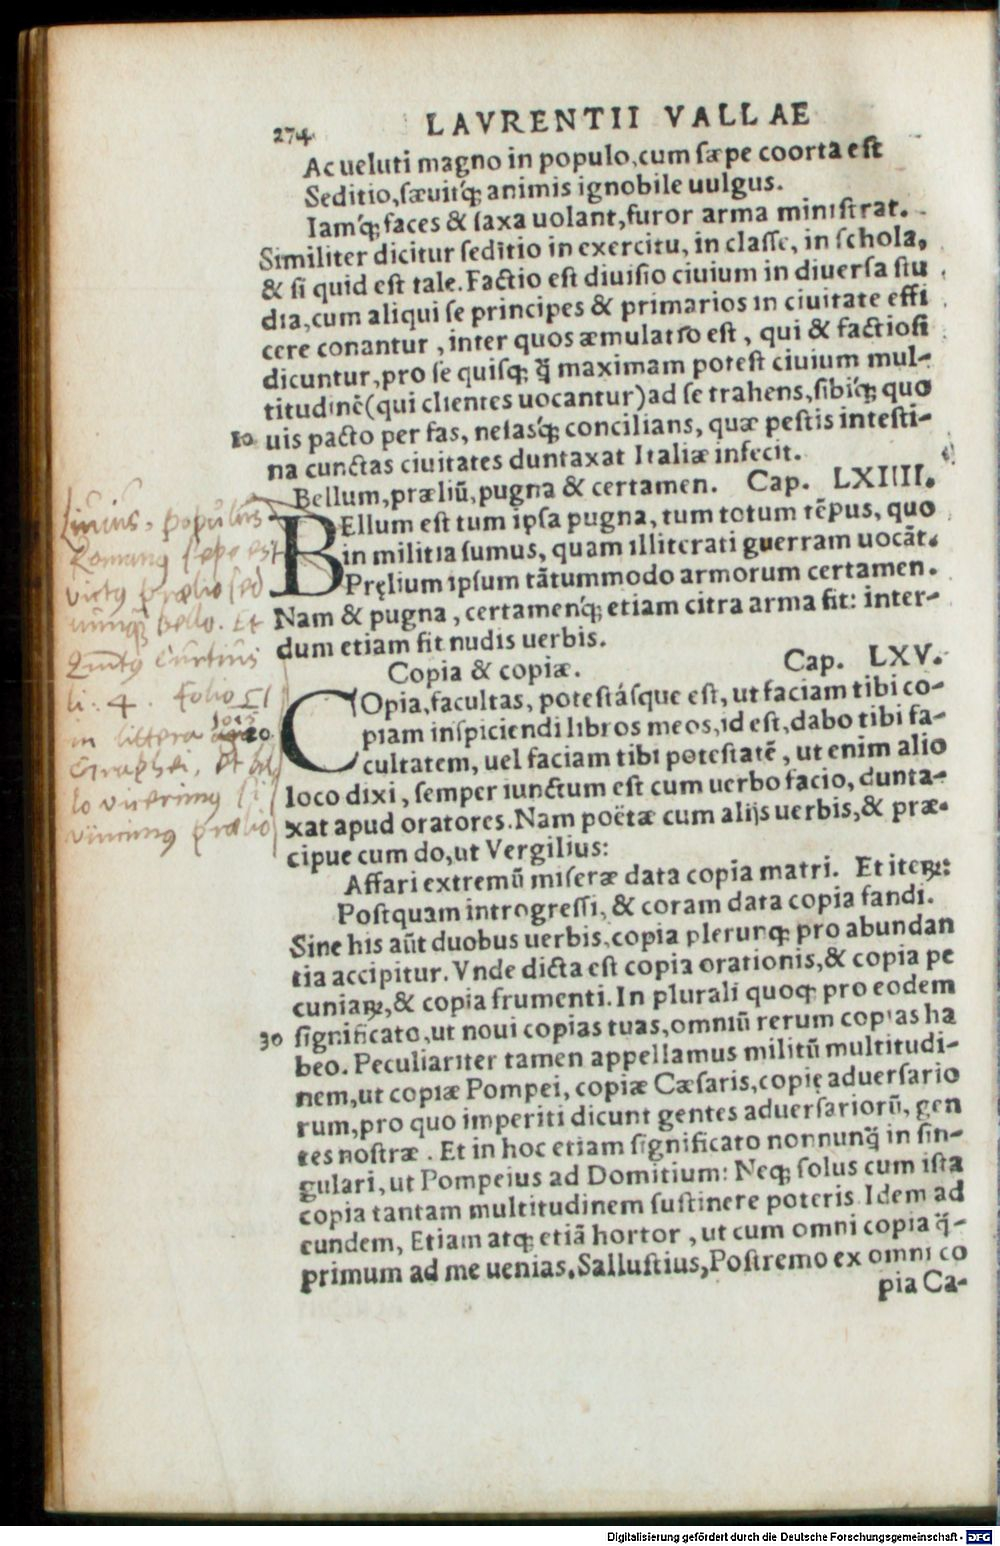 274 LAVRENTII VALLAE
Ac ueluti magno in populo, cum sæpe coorta est
Seditio, sæuitq́; animis ignobile uulgus.
Iamq́; faces & saxa uolant, furor arma ministrat.
Similiter dicitur seditio in exercitu, in classe, in schola,
& si quid est tale. Factio est diuisio ciuium in diuersa stu
dia, cum aliqui se principes & primarios in ciuitate effi
cere conantur, inter quos æmulatio est, qui & factiosi
dicuntur, pro se quisq; q̃ maximam potest ciuium mul-
titudinẽ (qui clientes uocantur) ad se trahens, sibiq́; quo
10 uis pacto per fas, nefasq́; concilians, quæ pestis intesti-
na cunctas ciuitates duntaxat Italiæ infecit.
Bellum, præliũ, pugna & certamen. Cap. LXIIII.
BEllum est tum ipsa pugna, tum totum tẽpus, quo
in militia sumus, quam illiterati guerram uocãt.
Pręlium ipsum tãtummodo armorum certamen.
Nam & pugna, certamenq́; etiam citra arma fit: inter-
dum etiam fit nudis uerbis.
Copia & copiæ. Cap. LXV.
COpia, facultas, potestásque est, ut faciam tibi co-
20 piam inspiciendi libros meos, id est, dabo tibi fa-
cultatem, uel faciam tibi potestatẽ, ut enim alio
loco dixi, semper iunctum est cum uerbo facio, dunta-
xat apud oratores. Nam poëtæ cum alijs uerbis, & præ-
cipue cum do, ut Vergilius:
Affari extremũ miseræ data copia matri. Et iteꝝ:
Postquam introgressi, & coram data copia fandi.
Sine his aũt duobus uerbis, copia plerunq; pro abundan
tia accipitur. Vnde dicta est copia orationis, & copia pe
cuniaꝝ, & copia frumenti. In plurali quoq; pro eodem
30 significato, ut noui copias tuas, omniũ rerum copias ha
beo. Peculiariter tamen appellamus militũ multitudi-
nem, ut copiæ Pompei, copiæ Cæsaris, copię aduersario
rum, pro quo imperiti dicunt gentes aduersariorũ, gen
tes nostræ. Et in hoc etiam significato nonnunq̃ in sin-
gulari, ut Pompeius ad Domitium: Neq; solus cum ista
copia tantam multitudinem sustinere poteris Idem ad
eundem, Etiam atq; etiã hortor, ut cum omni copia q̃-
primum ad me uenias. Sallustius, Postremo ex omni co
pia Ca-
Liuius, populus
Romanus sepe est
victus prælio sed
nunq̃ bello. Et
Quintus Curtius
li. 4. folio 51
in littera
Graphei, Et bel
lo vicerimus si
vincimus prælio
Digitalisierung gefördert durch die Deutsche Forschungsgemeinschaft - DFG